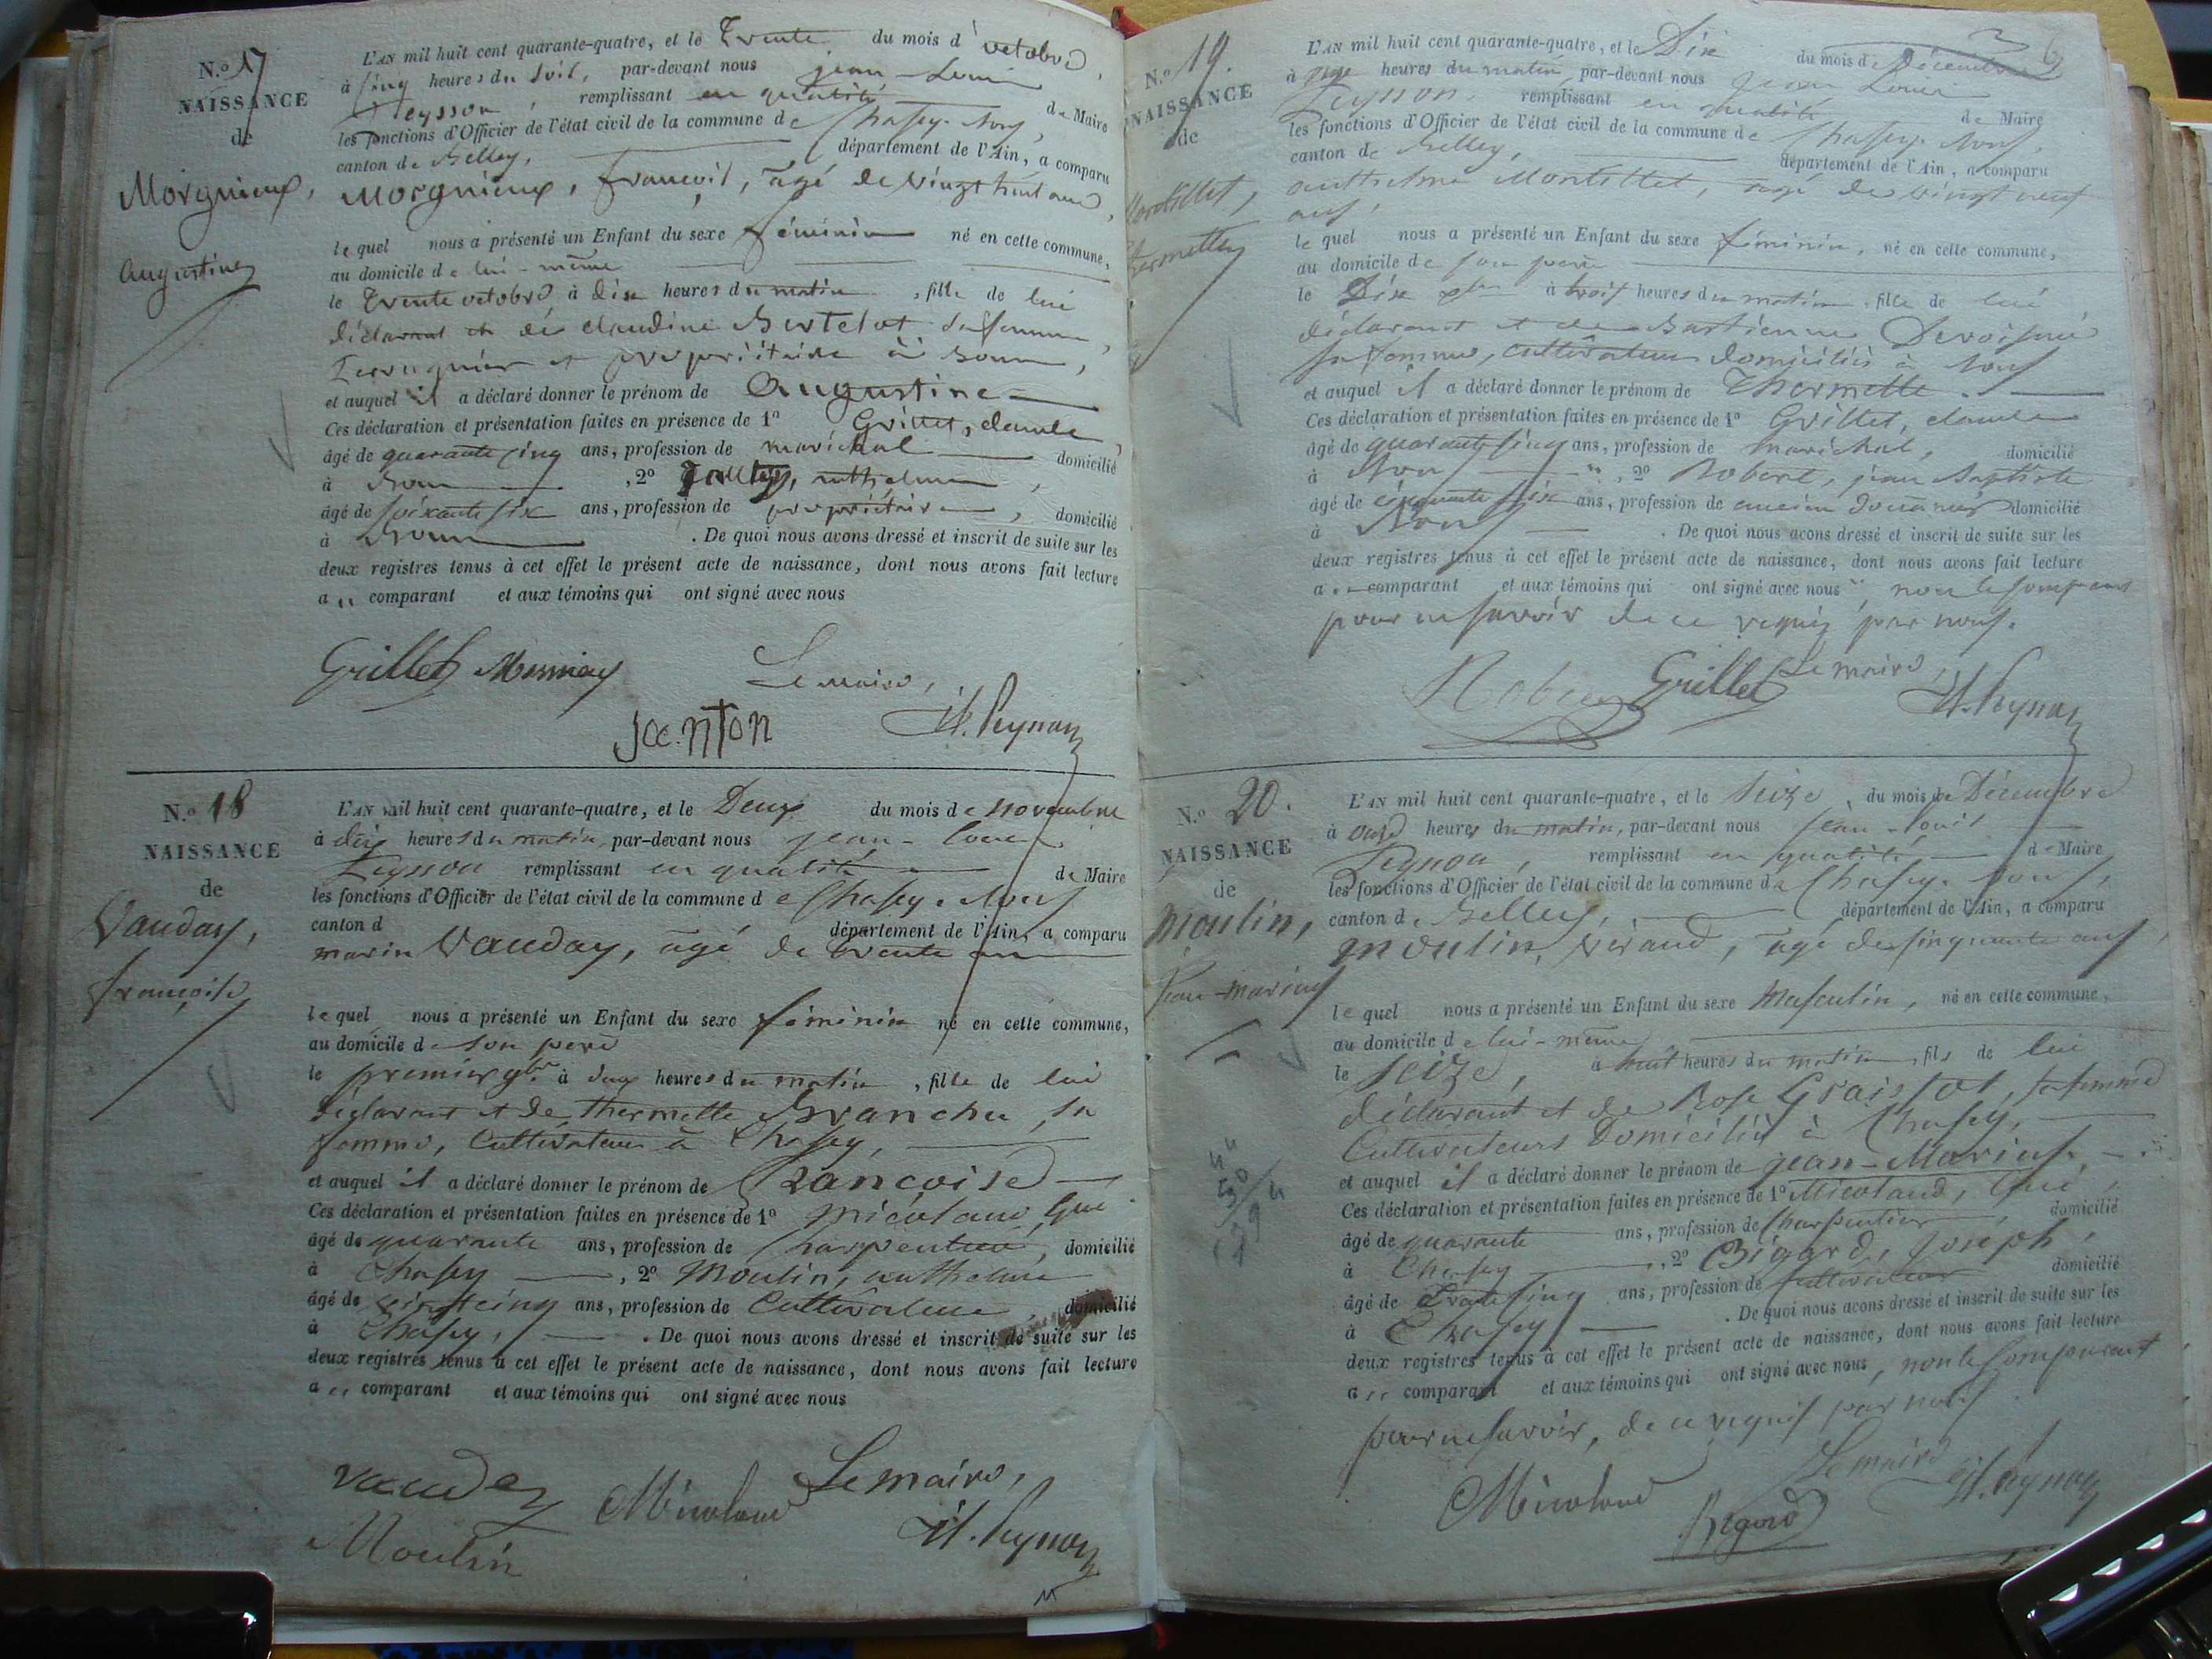 N.º 17
NAISSANCE
de
Morgnieux,
Augustine
L'AN mil huit cent quarante-quatre, et le Trente du mois d'octobre,
à cinq heures du soir, par-devant nous jean-Louis
Peysson, remplissant en qualité de Maire
les fonctions d'Officier de l'état civil de la commune de Chasey-Bons,
canton de Belley, département de l'Ain, a comparu
Morgnieux, francois, âgé de vingt huit ans,
lequel nous a présenté un Enfant du sexe féminin né en cette commune,
au domicile de lui-même
le Trente octobre à dix heures du matin, fille de lui
déclarant et de claudine Bertelot sa femme,
et propriétaire à Bons,
et auquel il a déclaré donner le prénom de Augustine
Ces déclaration et présentation faites en présence de 1º Grillet, claude,
âgé de quarante cinq ans, profession de maréchal domicilié
à Bons, 2º anthelme,
âgé de soixante six ans, profession de propriétaire, domicilié
à Bons. De quoi nous avons dressé et inscrit de suite sur les
deux registres tenus à cet effet le présent acte de naissance, dont nous avons fait lecture
a comparant et aux témoins qui ont signé avec nous
Grillet
Le maire,
J.L. Peysson
N.º 18
NAISSANCE
de
Vauday,
francoise
L'AN mil huit cent quarante-quatre, et le Deux du mois de novembre
à dix heures du matin, par-devant nous jean-Louis
Peysson remplissant en qualité de Maire
les fonctions d'Officier de l'état civil de la commune de Chasey-Bons
canton d département de l'Ain, a comparu
marin Vauday, âgé de trente ans
lequel nous a présenté un Enfant du sexe féminin né en cette commune,
au domicile de son père
le premier 9bre à heures du matin, fille de lui
déclarant et de thermette Branche, sa
femme, Cultivateurs à Chasey,
et auquel il a déclaré donner le prénom de Francoise
Ces déclaration et présentation faites en présence de 1º Micolaud Gui
âgé de quarante ans, profession de Charpentier, domicilié
à Chasey, 2º Moulin, anthelme
âgé de vingt cinq ans, profession de Cultivateur, domicilié
à Chasey, . De quoi nous avons dressé et inscrit de suite sur les
deux registres tenus à cet effet le présent acte de naissance, dont nous avons fait lecture
a comparant et aux témoins qui ont signé avec nous
Vauday Micolaud Le maire,
Moulin J.L. Peysson
N.º 19.
NAISSANCE
de
Montillet,
Thermette
L'AN mil huit cent quarante-quatre, et le Dix du mois de Décembre
à onze heures du matin, par-devant nous jean Louis
Peysson, remplissant en qualité de Maire
les fonctions d'Officier de l'état civil de la commune de Chasey-Bons,
canton de Belley, département de l'Ain, a comparu
anthelme Montillet, âgé de vingt neuf
ans,
lequel nous a présenté un Enfant du sexe féminin, né en cette commune,
au domicile de son père
le Dix à trois heures du matin, fille de lui
déclarant et de Bastienne
sa femme, cultivateurs domiciliés à Bons
et auquel il a déclaré donner le prénom de Thermette.
Ces déclaration et présentation faites en présence de 1º Grillet, claude
âgé de quarante cinq ans, profession de maréchal, domicilié
à Bons, 2º Robert, jean Baptiste
âgé de cinquante six ans, profession de ancien Douanier domicilié
à Bons. De quoi nous avons dressé et inscrit de suite sur les
deux registres tenus à cet effet le présent acte de naissance, dont nous avons fait lecture
a comparant et aux témoins qui ont signé avec nous, non le comparant
pour ne savoir de ce requis par nous.
Grillet Le maire,
J.L. Peysson
N.º 20.
NAISSANCE
de
Moulin,
Jean-marius
L'AN mil huit cent quarante-quatre, et le Seize, du mois de Décembre
à onze heures du matin, par-devant nous jean-Louis
Peysson, remplissant en qualité de Maire
les fonctions d'Officier de l'état civil de la commune de Chasey-Bons,
canton de Belley, département de l'Ain, a comparu
moulin, véraud, âgé de cinquante ans,
lequel nous a présenté un Enfant du sexe Masculin, né en cette commune,
au domicile de lui-même
le Seize, à huit heures du matin, fils de lui
déclarant et de Rose sa femme
Cultivateurs Domiciliés à Chasey,
et auquel il a déclaré donner le prénom de jean-Marius
Ces déclaration et présentation faites en présence de 1º Micolaud, Gui,
âgé de quarante ans, profession de Charpentier, domicilié
à Chasey, 2º Bigard, joseph,
âgé de trente cinq ans, profession de cultivateur domicilié
à Chasey. De quoi nous avons dressé et inscrit de suite sur les
deux registres tenus à cet effet le présent acte de naissance, dont nous avons fait lecture
a comparant et aux témoins qui ont signé avec nous, non le comparant
pour ne savoir, de ce requis par nous.
Micolaud Bigard Le maire J.L. Peysson